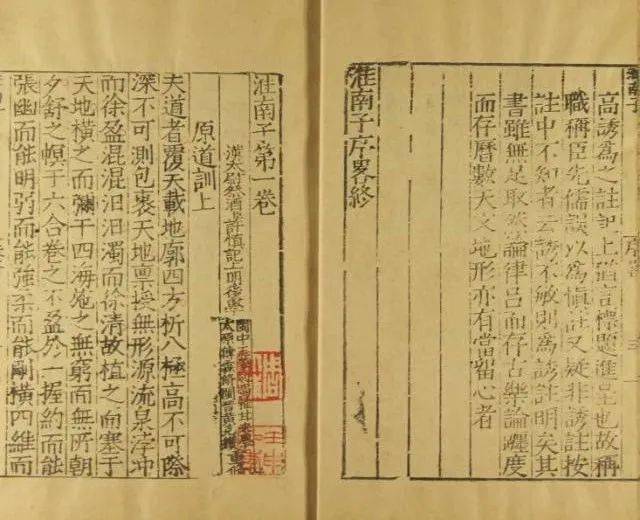 高誘為之註
職稱臣先儒誤以為慎註又疑非誘註按
註中不知者云誘不敏則為誘註明矣其
書雖無足取然論律吕而存古樂論躔度
而存曆數天文地形亦有當留心者
淮南子序畧終
淮南子第一卷
漢太尉祭酒許慎記上
原道訓上
夫道者覆天載地廓四方析八極高不可際
深不可測包裹天地禀授無形源流泉浡冲
而徐盈混混汩汩濁而徐清故植之而塞于
天地橫之而彌于四海施之無窮而無所朝
夕舒之幎于六合卷之不盈於一握約而能
張幽而能明弱而能強柔而能剛橫四維而